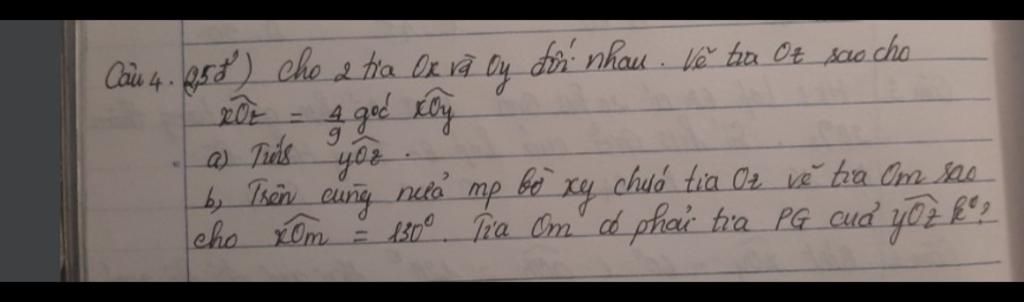 Câu 4. (2,5đ) Cho 2 tia Ox và Oy đối nhau. Vẽ tia Oz sao cho
xOz = 4/9 góc xOy
a) Tính yOz.
b, Trên cùng nửa mp bờ xy chứa tia Oz vẽ tia Om sao
cho xOm = 130°. Tia Om có phải tia PG của yOz k°?